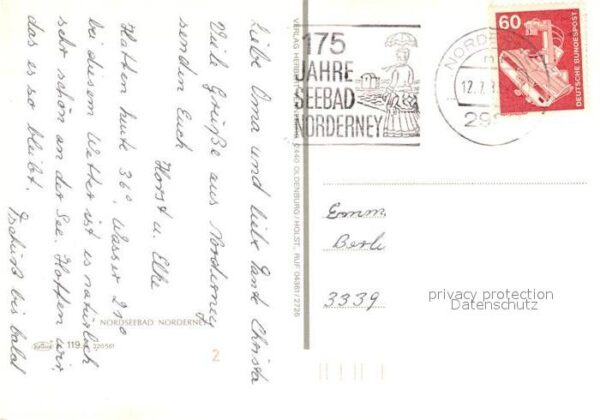 Liebe Oma und liebe Tante Christa
Viele Grüße aus Norderney
senden Euch
Horst u. Elke
Hatten heute 36°, Wasser 21°
bei diesem Wetter ist es natürlich
sehr schön an der See. Hoffen wir,
das es so bleibt.
Tschüß bis bald
NORDSEEBAD NORDERNEY
119
2
VERLAG
2440 OLDENBURG/HOLST., RUF 04361/2726
175
JAHRE
SEEBAD
NORDERNEY
12.7.
60
DEUTSCHE BUNDESPOST
Emm
Berli
3339
privacy protection
Datenschutz